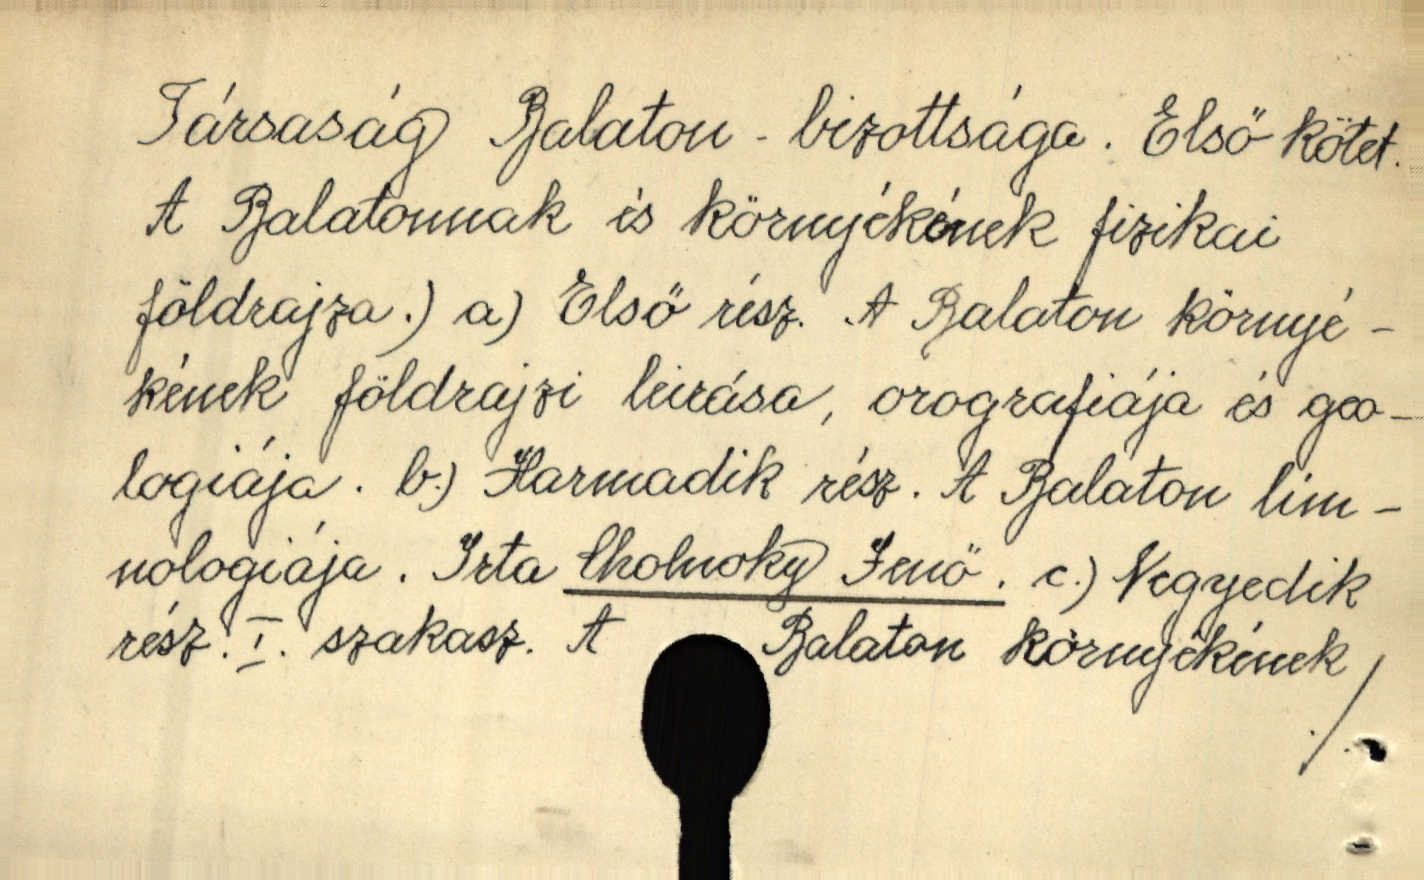 Társaság Balaton - bizottsága. Első kötet.
A Balatonnak és környékének fizikai
földrajza.) a) Első rész. A Balaton környé-
kének földrajzi leirása, orografiája és geo-
logiája. b.) Harmadik rész. A Balaton lim-
nologiája. Irta Cholnoky Jenő. c.) Negyedik
rész. I. szakasz. A Balaton környékének /